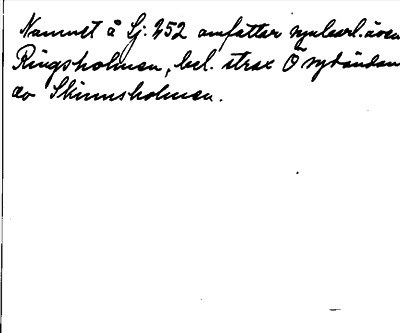 Namnet å Sj. 252 omfattar synbarl. även
Ringsholmen, bel. strax Ö sydändan
av Skinnsholmen.